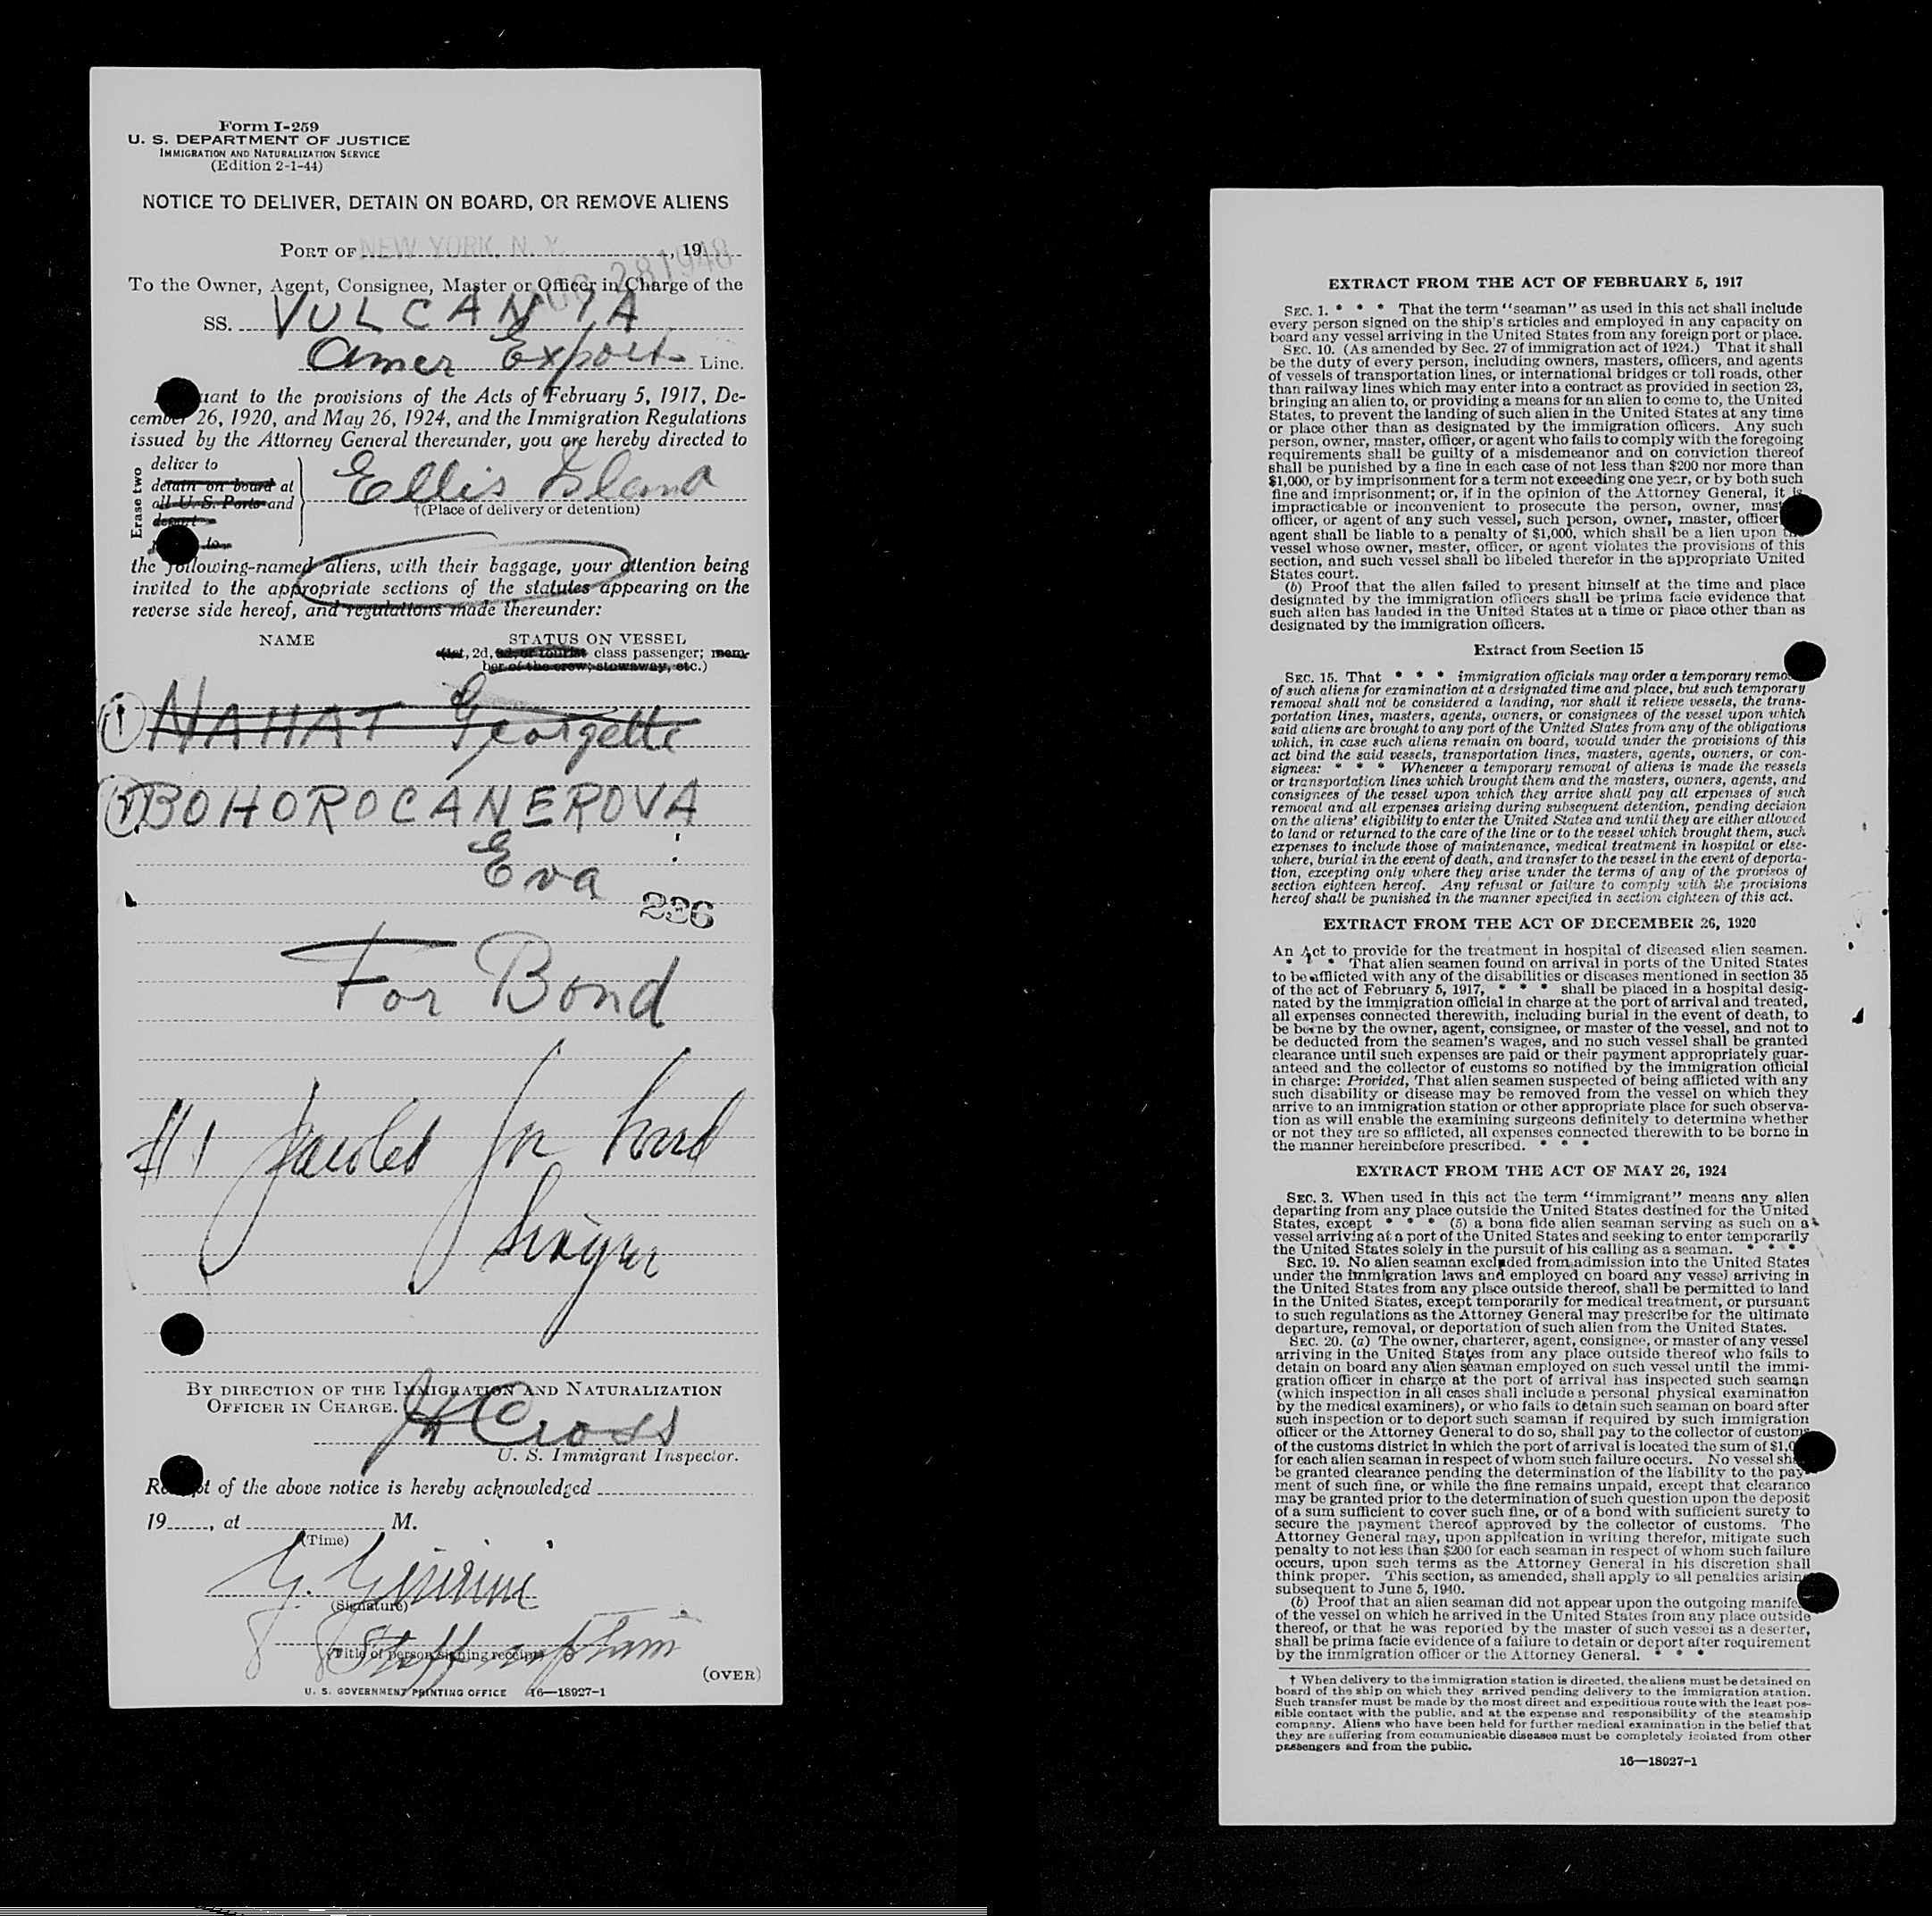 Form I-259
U. S. DEPARTMENT OF JUSTICE
IMMIGRATION AND NATURALIZATION SERVICE
(Edition 2-1-44)
NOTICE TO DELIVER, DETAIN ON BOARD, OR REMOVE ALIENS
PORT OF NEW YORK, N. Y. , 19
28 1948
To the Owner, Agent, Consignee, Master or Officer in Charge of the
SS. VULCANIA
Amer Export Line.
uant to the provisions of the Acts of February 5, 1917, De-
cember 26, 1920, and May 26, 1924, and the Immigration Regulations
issued by the Attorney General thereunder, you are hereby directed to
Erase two
deliver to
detain on board at
all U. S. Ports and
depart
to
Ellis Island
†(Place of delivery or detention)
the following-named aliens, with their baggage, your attention being
invited to the appropriate sections of the statutes appearing on the
reverse side hereof, and regulations made thereunder:
NAME STATUS ON VESSEL
(1st, 2d, 3d, or tourist class passenger; mem-
ber of the crew; stowaway, etc.)
1 NAHAT Georgette
BOHOROCANEROVA
Eva
236
For Bond
#1 paroled for bond
BY DIRECTION OF THE IMMIGRATION AND NATURALIZATION
OFFICER IN CHARGE.
Cross
U. S. Immigrant Inspector.
Receipt of the above notice is hereby acknowledged
19 , at M.
(Time)
G.
(Signature)
Staff captain
(Title of person signing receipt)
(OVER)
U. S. GOVERNMENT PRINTING OFFICE 16—18927-1
EXTRACT FROM THE ACT OF FEBRUARY 5, 1917
SEC. 1. * * * That the term "seaman" as used in this act shall include
every person signed on the ship's articles and employed in any capacity on
board any vessel arriving in the United States from any foreign port or place.
SEC. 10. (As amended by Sec. 27 of immigration act of 1924.) That it shall
be the duty of every person, including owners, masters, officers, and agents
of vessels of transportation lines, or international bridges or toll roads, other
than railway lines which may enter into a contract as provided in section 23,
bringing an alien to, or providing a means for an alien to come to, the United
States, to prevent the landing of such alien in the United States at any time
or place other than as designated by the immigration officers. Any such
person, owner, master, officer, or agent who fails to comply with the foregoing
requirements shall be guilty of a misdemeanor and on conviction thereof
shall be punished by a fine in each case of not less than $200 nor more than
$1,000, or by imprisonment for a term not exceeding one year, or by both such
fine and imprisonment; or, if in the opinion of the Attorney General, it is
impracticable or inconvenient to prosecute the person, owner, mast
officer, or agent of any such vessel, such person, owner, master, officer
agent shall be liable to a penalty of $1,000, which shall be a lien upon the
vessel whose owner, master, officer, or agent violates the provisions of this
section, and such vessel shall be libeled therefor in the appropriate United
States court.
(b) Proof that the alien failed to present himself at the time and place
designated by the immigration officers shall be prima facie evidence that
such alien has landed in the United States at a time or place other than as
designated by the immigration officers.
Extract from Section 15
SEC. 15. That * * * immigration officials may order a temporary remo
of such aliens for examination at a designated time and place, but such temporary
removal shall not be considered a landing, nor shall it relieve vessels, the trans-
portation lines, masters, agents, owners, or consignees of the vessel upon which
said aliens are brought to any port of the United States from any of the obligations
which, in case such aliens remain on board, would under the provisions of this
act bind the said vessels, transportation lines, masters, agents, owners, or con-
signees: * * * Whenever a temporary removal of aliens is made the vessels
or transportation lines which brought them and the masters, owners, agents, and
consignees of the vessel upon which they arrive shall pay all expenses of such
removal and all expenses arising during subsequent detention, pending decision
on the aliens' eligibility to enter the United States and until they are either allowed
to land or returned to the care of the line or to the vessel which brought them, such
expenses to include those of maintenance, medical treatment in hospital or else-
where, burial in the event of death, and transfer to the vessel in the event of deporta-
tion, excepting only where they arise under the terms of any of the provisos of
section eighteen hereof. Any refusal or failure to comply with the provisions
hereof shall be punished in the manner specified in section eighteen of this act.
EXTRACT FROM THE ACT OF DECEMBER 26, 1920
An Act to provide for the treatment in hospital of diseased alien seamen.
* * * That alien seamen found on arrival in ports of the United States
to be afflicted with any of the disabilities or diseases mentioned in section 35
of the act of February 5, 1917, * * * shall be placed in a hospital desig-
nated by the immigration official in charge at the port of arrival and treated,
all expenses connected therewith, including burial in the event of death, to
be borne by the owner, agent, consignee, or master of the vessel, and not to
be deducted from the seamen's wages, and no such vessel shall be granted
clearance until such expenses are paid or their payment appropriately guar-
anteed and the collector of customs so notified by the immigration official
in charge: Provided, That alien seamen suspected of being afflicted with any
such disability or disease may be removed from the vessel on which they
arrive to an immigration station or other appropriate place for such observa-
tion as will enable the examining surgeons definitely to determine whether
or not they are so afflicted, all expenses connected therewith to be borne in
the manner hereinbefore prescribed. * * *
EXTRACT FROM THE ACT OF MAY 26, 1924
SEC. 3. When used in this act the term "immigrant" means any alien
departing from any place outside the United States destined for the United
States, except * * * (5) a bona fide alien seaman serving as such on a
vessel arriving at a port of the United States and seeking to enter temporarily
the United States solely in the pursuit of his calling as a seaman. * * *
SEC. 19. No alien seaman excluded from admission into the United States
under the immigration laws and employed on board any vessel arriving in
the United States from any place outside thereof, shall be permitted to land
in the United States, except temporarily for medical treatment, or pursuant
to such regulations as the Attorney General may prescribe for the ultimate
departure, removal, or deportation of such alien from the United States.
SEC. 20. (a) The owner, charterer, agent, consignee, or master of any vessel
arriving in the United States from any place outside thereof who fails to
detain on board any alien seaman employed on such vessel until the immi-
gration officer in charge at the port of arrival has inspected such seaman
(which inspection in all cases shall include a personal physical examination
by the medical examiners), or who fails to detain such seaman on board after
such inspection or to deport such seaman if required by such immigration
officer or the Attorney General to do so, shall pay to the collector of customs
of the customs district in which the port of arrival is located the sum of $1,0
for each alien seaman in respect of whom such failure occurs. No vessel sha
be granted clearance pending the determination of the liability to the pay-
ment of such fine, or while the fine remains unpaid, except that clearance
may be granted prior to the determination of such question upon the deposit
of a sum sufficient to cover such fine, or of a bond with sufficient surety to
secure the payment thereof approved by the collector of customs. The
Attorney General may, upon application in writing therefor, mitigate such
penalty to not less than $200 for each seaman in respect of whom such failure
occurs, upon such terms as the Attorney General in his discretion shall
think proper. This section, as amended, shall apply to all penalties arising
subsequent to June 5, 1940.
(b) Proof that an alien seaman did not appear upon the outgoing manifes
of the vessel on which he arrived in the United States from any place outside
thereof, or that he was reported by the master of such vessel as a deserter,
shall be prima facie evidence of a failure to detain or deport after requirement
by the immigration officer or the Attorney General. * * *
† When delivery to the immigration station is directed, the aliens must be detained on
board of the ship on which they arrived pending delivery to the immigration station.
Such transfer must be made by the most direct and expeditious route with the least pos-
sible contact with the public, and at the expense and responsibility of the steamship
company. Aliens who have been held for further medical examination in the belief that
they are suffering from communicable diseases must be completely isolated from other
passengers and from the public.
16—18927-1